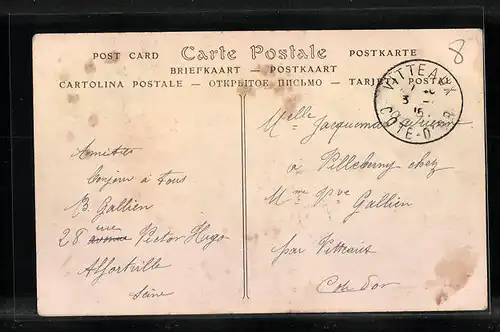 POST CARD Carte Postale POSTKARTE
BRIEFKAART — POSTKAART
CARTOLINA POSTALE — ОТКРЫТОЕ ПИСЬМО — TARJETA POSTAL
8
VITTEAUX
CÔTE-D'OR
Amitiés
bonjour à tous
B. Gallien
rue
28 avenue Victor Hugo
Alfortville
Seine
Melle Jacquemard
à Villeberny chez
Mme Vve
Gallien
par Vitteaux
Cote d'or